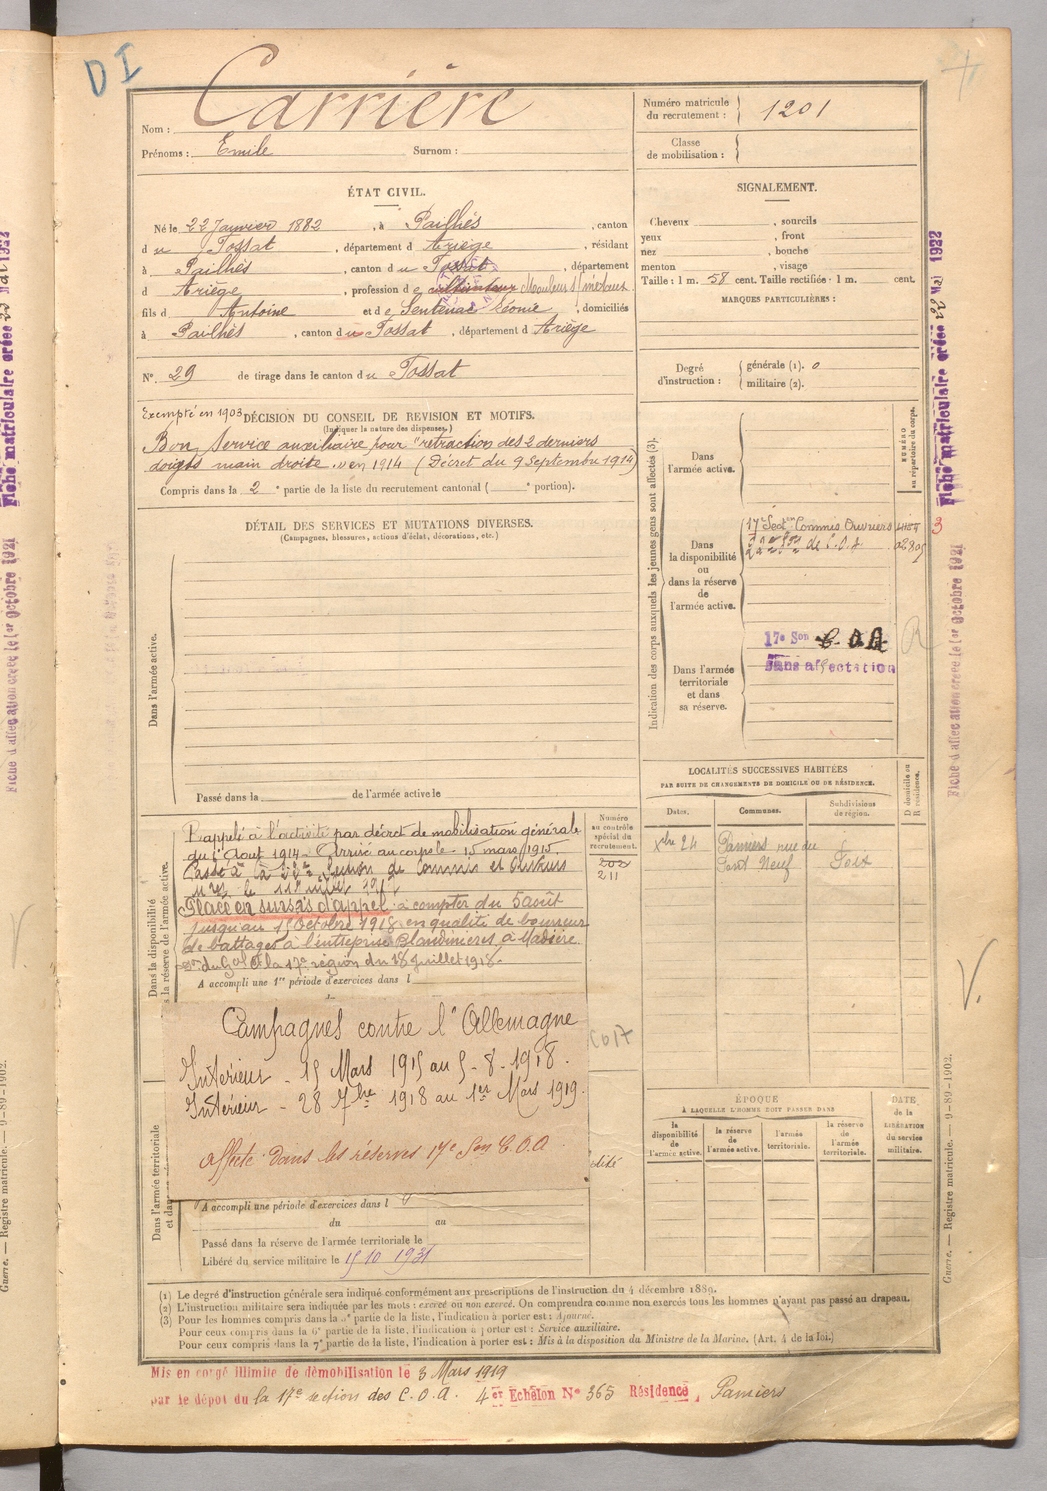 D I
Carrière
Nom :
Prénoms : Emile Surnom :
Numéro matricule
du recrutement : 1201
Classe
de mobilisation :
ÉTAT CIVIL.
Né le 22 Janvier 1882, à Pailhés, canton
d u Fossat, département d Ariège, résidant
à Pailhès, canton d u Fossat, département
d Ariège, profession de cultivateur
fils d Antoine et de Sentenac Léonie, domiciliés
à Pailhès, canton du Fossat, département d Ariège
N° 29 de tirage dans le canton du Fossat
SIGNALEMENT.
Cheveux , sourcils
yeux , front
nez , bouche
menton , visage
Taille : 1 m. 58 cent. Taille rectifiée : 1 m. cent.
MARQUES PARTICULIÈRES :
Degré
d'instruction :
générale (1). 0
militaire (2).
Exempté en 1903
DÉCISION DU CONSEIL DE REVISION ET MOTIFS.
(Indiquer la nature des dispenses.)
Bon, Service auxiliaire pour "rétraction des 2 derniers
doigts main droite" en 1914 (Décret du 9 Septembre 1914)
Compris dans la 2e partie de la liste du recrutement cantonal ( e portion).
DÉTAIL DES SERVICES ET MUTATIONS DIVERSES.
(Campagnes, blessures, actions d'éclat, décorations, etc.)
Dans l'armée active.
Passé dans la de l'armée active le
Indication des corps auxquels les jeunes gens sont affectés (3).
NUMÉRO
au répertoire du corps.
Dans
l'armée active.
Dans
la disponibilité
ou
dans la réserve
de
l'armée active.
17e Son Commis Ouvriers
de C.O.A
Dans l'armée
territoriale
et dans
sa réserve.
17e Son C.O.A
Sans affectation
LOCALITÉS SUCCESSIVES HABITÉES
PAR SUITE DE CHANGEMENTS DE DOMICILE OU DE RÉSIDENCE.
Dates. Communes. Subdivisions
de région.
D domicile ou
R résidence.
Xbre 24 Pamiers rue du
Pont Neuf Foix
Dans la disponibilité
la réserve de l'armée active.
Numéro
au contrôle
spécial du
recrutement.
202
211
Rappelé à l'activité par décret de mobilisation générale
du 1er Août 1914. Arrivé au corps le 15 mars 1915.
Passé à la Section de Commis et Ouvriers
Placé en sursis d'appel à compter du 5 août
jusqu'au 15 Octobre 1918 en qualité de bourreur
de battages à l'entreprise Blandinières à Madière
du Gal Ct la 17e région du 18 Juillet 1918.
A accompli une 1re période d'exercices dans l
Campagnes contre l'Allemagne
Intérieur - 15 Mars 1915 au 5-8-1918.
Intérieur - 28 7bre 1918 au 1er Mars 1919.
affecté dans les réserves 17e Son C.O.A
Dans l'armée territoriale
A accompli une période d'exercices dans l
du au
Passé dans la réserve de l'armée territoriale le
Libéré du service militaire le 15 10 1931
ÉPOQUE
À LAQUELLE L'HOMME DOIT PASSER DANS
DATE
de la
LIBÉRATION
du service
militaire.
la
disponibilité
de
l'armée active.
la réserve
de
l'armée active.
l'armée
territoriale.
la réserve
de
l'armée
territoriale.
(1) Le degré d'instruction générale sera indiqué conformément aux prescriptions de l'instruction du 4 décembre 1889.
(2) L'instruction militaire sera indiquée par les mots : exercé ou non exercé. On comprendra comme non exercés tous les hommes n'ayant pas passé au drapeau.
(3) Pour les hommes compris dans la 4e partie de la liste, l'indication à porter est : Ajourné.
Pour ceux compris dans la 6e partie de la liste, l'indication à porter est : Service auxiliaire.
Pour ceux compris dans la 7e partie de la liste, l'indication à porter est : Mis à la disposition du Ministre de la Marine. (Art. 4 de la loi.)
Mis en congé illimité de démobilisation le 3 Mars 1919
par le dépôt du la 17e section des C.O.A. 4er Échelon N° 365 Résidence, Pamiers
Fiche matriculaire créée 23 Mai 1922
Fiche d'affectation créée le 1er Octobre 1921
Guerre. — Registre matricule. — 9-89-1902.